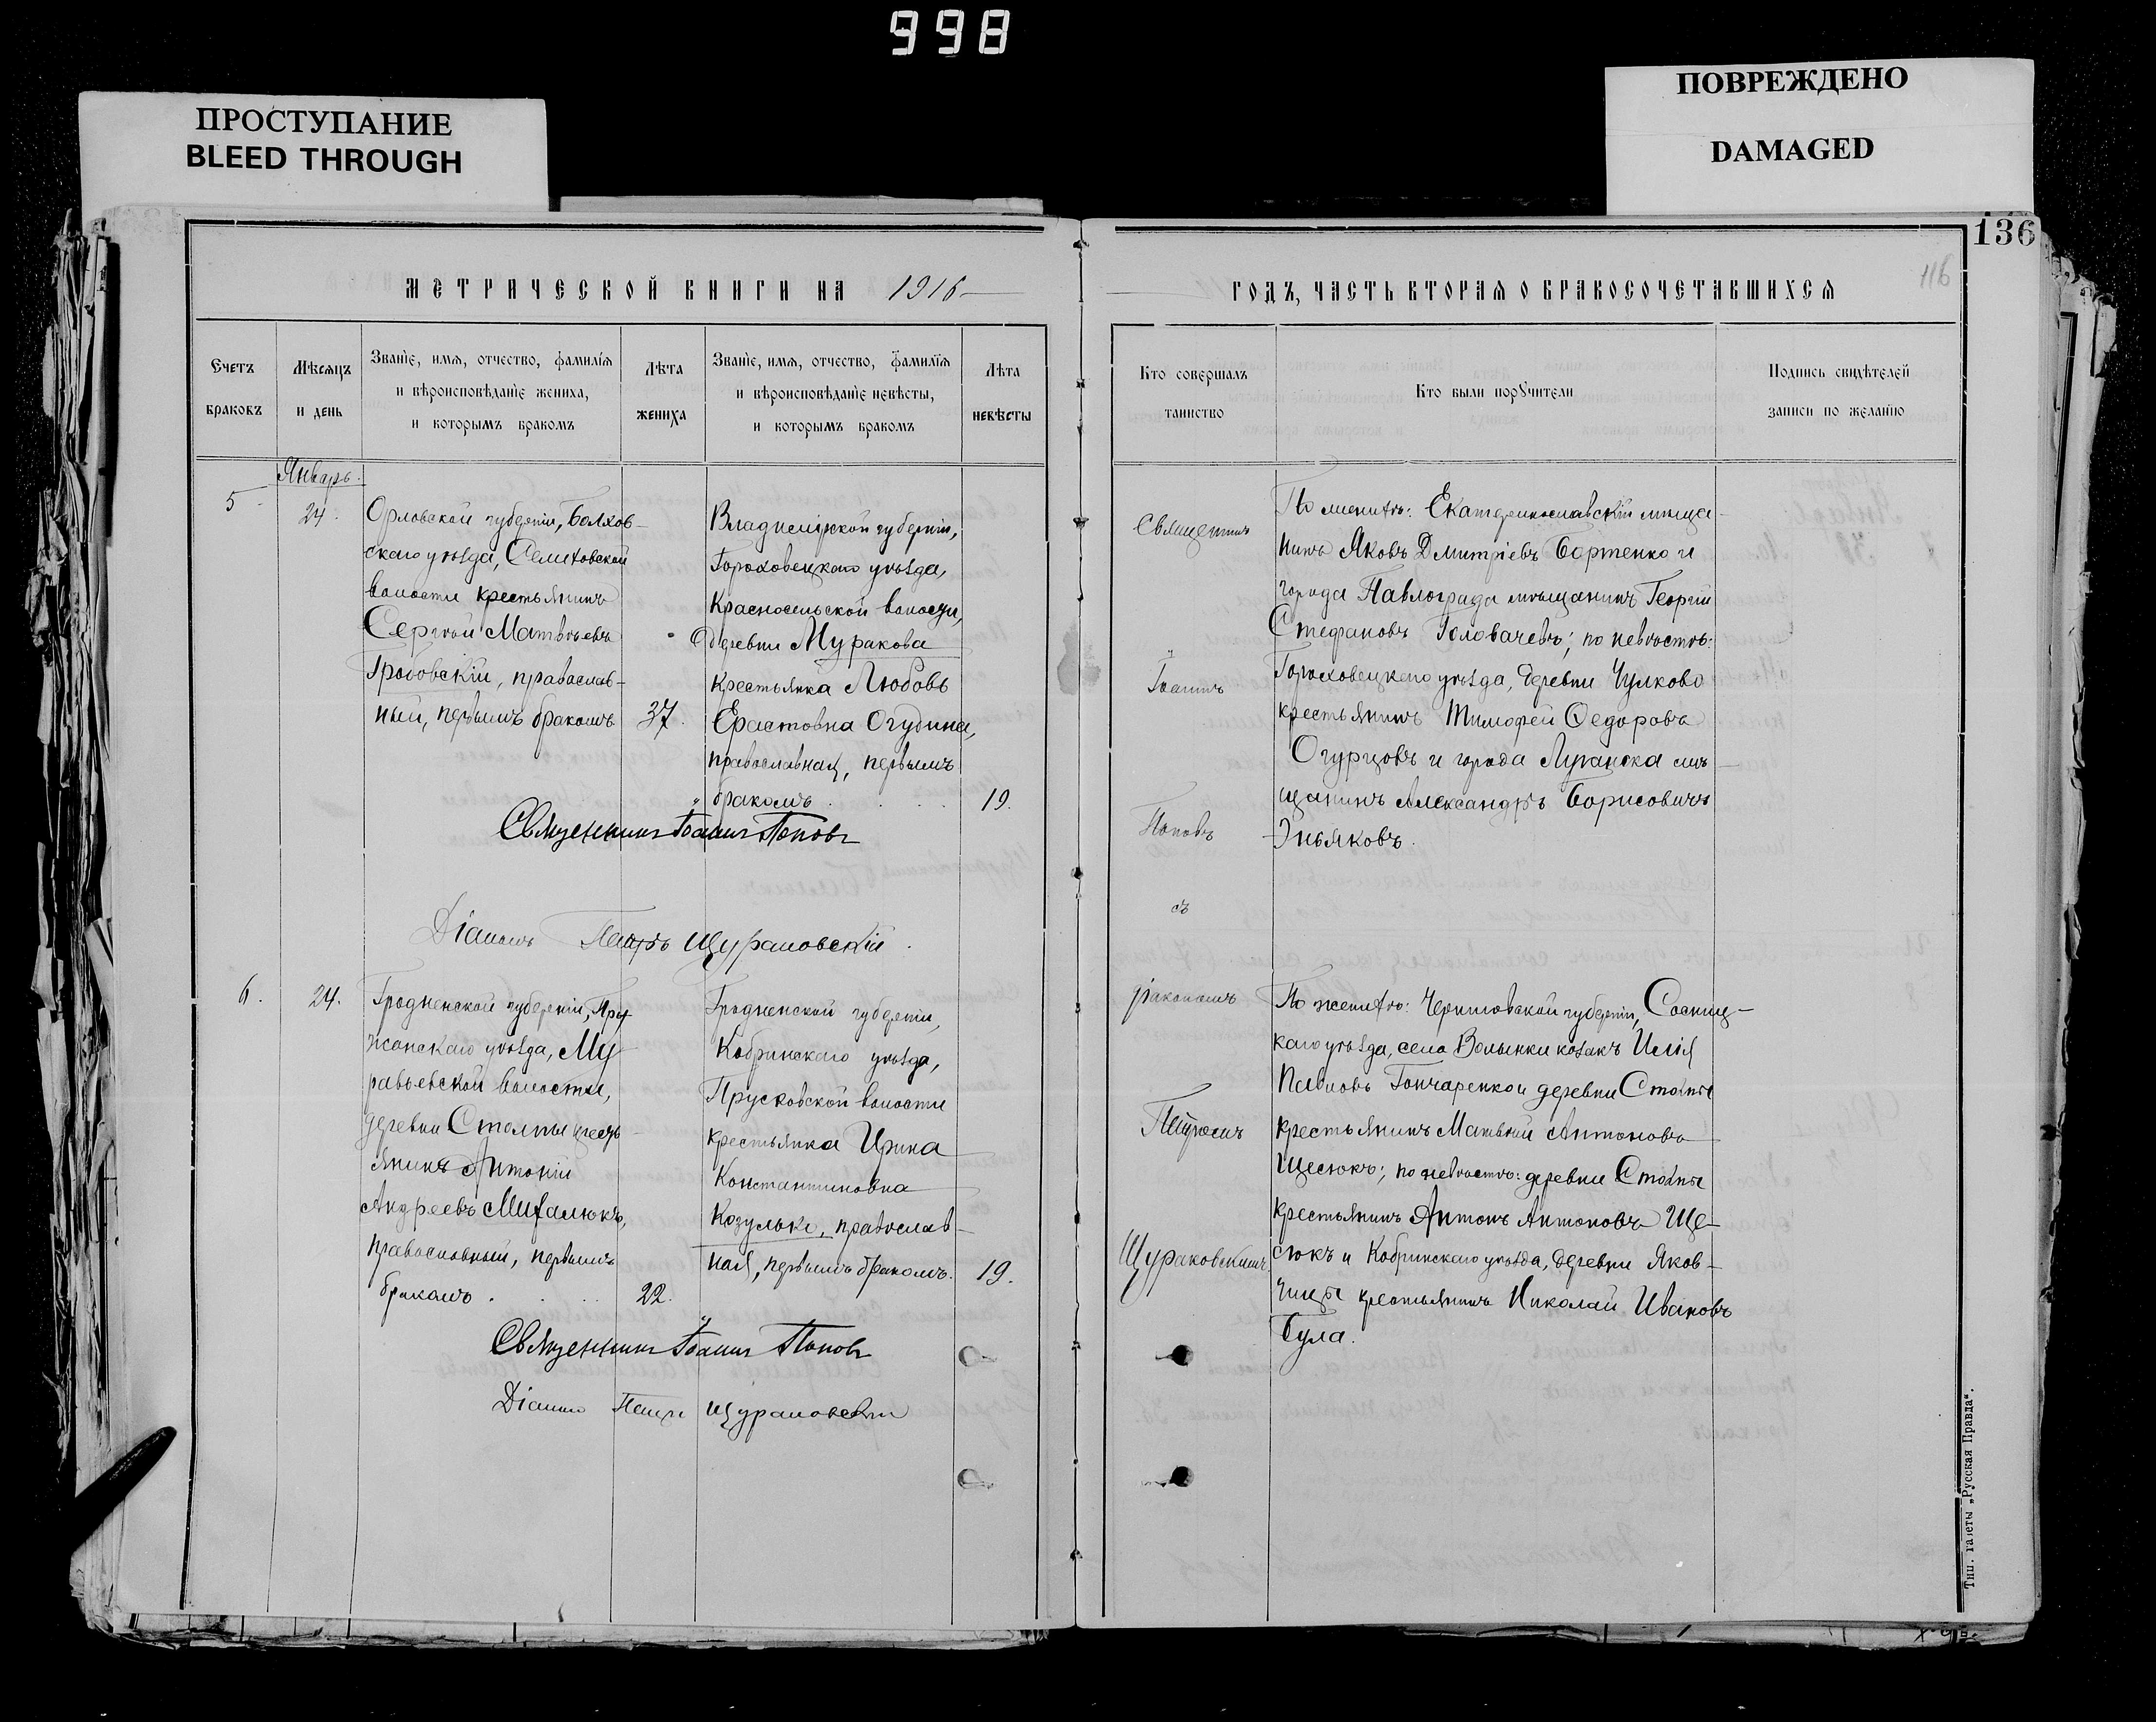 998
ПРОСТУПАНИЕ
BLEED THROUGH
ПОВРЕЖДЕНО
DAMAGED
136
116
МЕТРИЧЕСКОЙ КНИГИ НА 1916
ГОДЪ, ЧАСТЬ ВТОРАЯ О БРАКОСОЧЕТАВШИХСЯ
Счетъ
браковъ
Мѣсяцъ
и день
Званіе, имя, отчество, фамилія
и вѣроисповѣданіе жениха,
и которымъ бракомъ
Лѣта
жениха
Званіе, имя, отчество, фамилія
и вѣроисповѣданіе невѣсты,
и которымъ бракомъ
Лѣта
невѣсты
Кто совершалъ
таинство
Кто были порꙋчители
Подпись свидѣтелей
записи по желанію
Январь.
5
24.
Орловской губерніи, Болхов-
скаго уѣзда,
волости крестьянинъ
Сергѣй Матвѣевъ
православ-
ный, первымъ бракомъ
37.
Владимірской губерніи,
Гороховецкаго уѣзда,
Красносельской волости,
деревни Муракова
крестьянка Любовь
Ерастовна Огудина,
православная, первымъ
бракомъ
19.
Священникъ
Іоаннъ
Поповъ
съ
діакономъ
Петромъ
Щураковскимъ
По женихѣ: Екатеринославскій мѣща-
нинъ Яковъ Дмитріевъ Бортенко и
города Павлограда мѣщанинъ Георгій
Стефановъ Головачевъ; по невѣстѣ:
Гороховецкаго уѣзда, деревни Чулково
крестьянинъ Тимофей Ѳедоровъ
Огурцовъ и города Луганска мѣ-
щанинъ Александръ Борисовичъ
Священникъ Іоаннъ Поповъ
Діаконъ Петръ Щураковскій.
6.
24.
Гродненской губерніи, Пру-
жанскаго уѣзда, Му-
равьевской волости,
деревни Столпы кресть-
янинъ Антоній
Андреевъ Михалюкъ,
православный, первымъ
бракомъ
22.
Гродненской губерніи,
Кобринскаго уѣзда,
Прусковской волости
крестьянка Ирина
Константиновна
Козулько, православ-
ная, первымъ бракомъ.
19.
По женихѣ: Черниговской губерніи, Сосниц-
каго уѣзда, села Волынки козакъ Илія
Гончаренко и деревни Столпы
крестьянинъ Матвѣй Антоновъ
Щесюкъ; по невѣстѣ: деревни Столпы
крестьянинъ Антонъ Антоновъ Ще-
сюкъ и Кобринскаго уѣзда, деревни Яков-
чицы крестьянинъ Николай Ивановъ
Була.
Священникъ Іоаннъ Поповъ
Діаконъ Петръ Щураковскій
Тип. газеты „Русская Правда“.